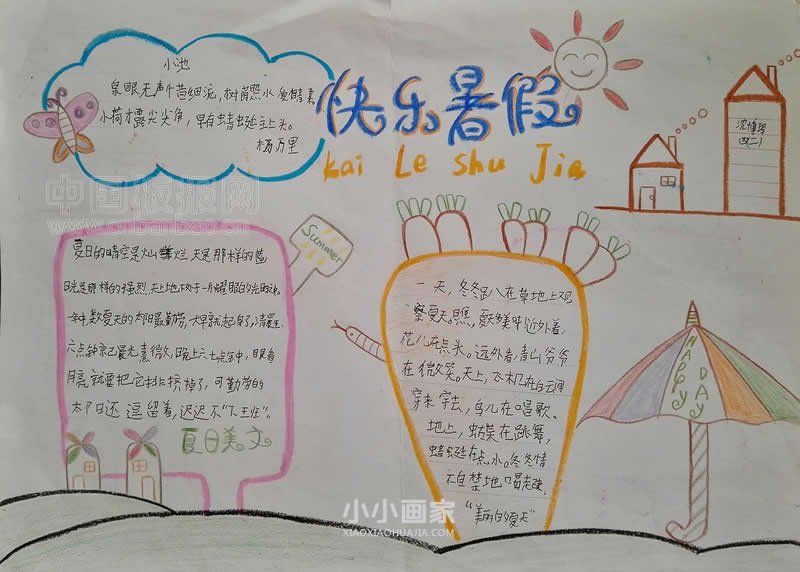 快乐暑假
kai Le shu Jia
小池
泉眼无声惜细流,树荫照水爱晴柔
小荷才露尖尖角,早有蜻蜓立上头。
杨万里
四(二)
中国板报网
Summer
夏日的晴空是灿烂,天是那样的蓝
日光是那样的强烈,天上地下处于一片耀眼的光明之中。
一年中,数夏天的太阳最勤劳,大早就起身了,清晨
六点钟就已晨光熹微,晚上六七点钟,眼看
月亮就要把它排挤掉了,可勤劳的
太阳还逗留着,迟迟不“下班”。
夏日美文
一天,冬冬趴在草地上观
察夏天。瞧,夏天多美呀!近处看,
花儿在点头。远处看,青山爷爷
在微笑。天上,飞机在白云间
穿来穿去,鸟儿在唱歌。
地上,蝴蝶在跳舞,
蜻蜓在点水。冬冬情
不自禁地唱起来:
“美丽的夏天”
HAPPY DAY
小小画家
XIAOXIAOHUAJIA.COM